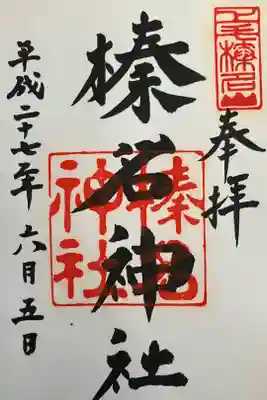 上毛榛名山
奉拝
榛名神社
榛名神社
平成二十七年 六月五日